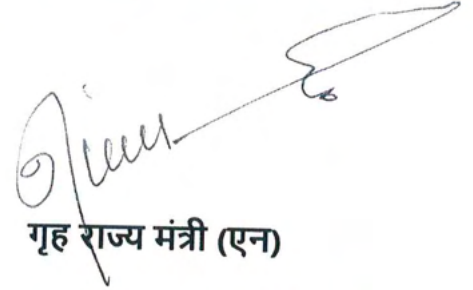 गृह राज्य मंत्री (एन)